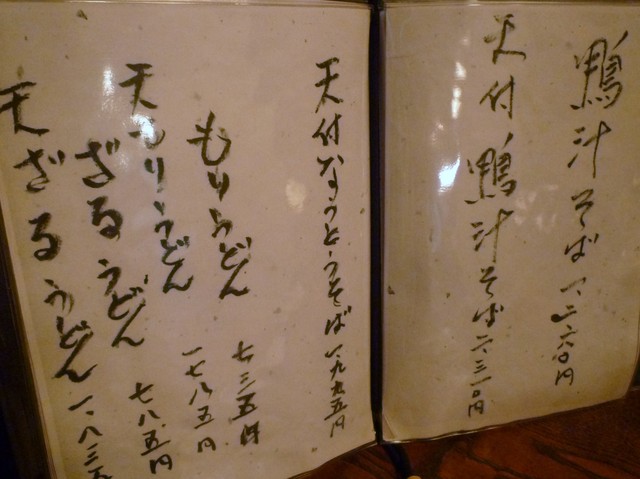 鴨汁そば 一、二六〇円
天付鴨汁そば 二、三一〇円
天付なっとうそば 一、九九五円
もりうどん 七三五円
天もりうどん 一七八五円
ざるうどん 七八五円
天ざるうどん 一、八三